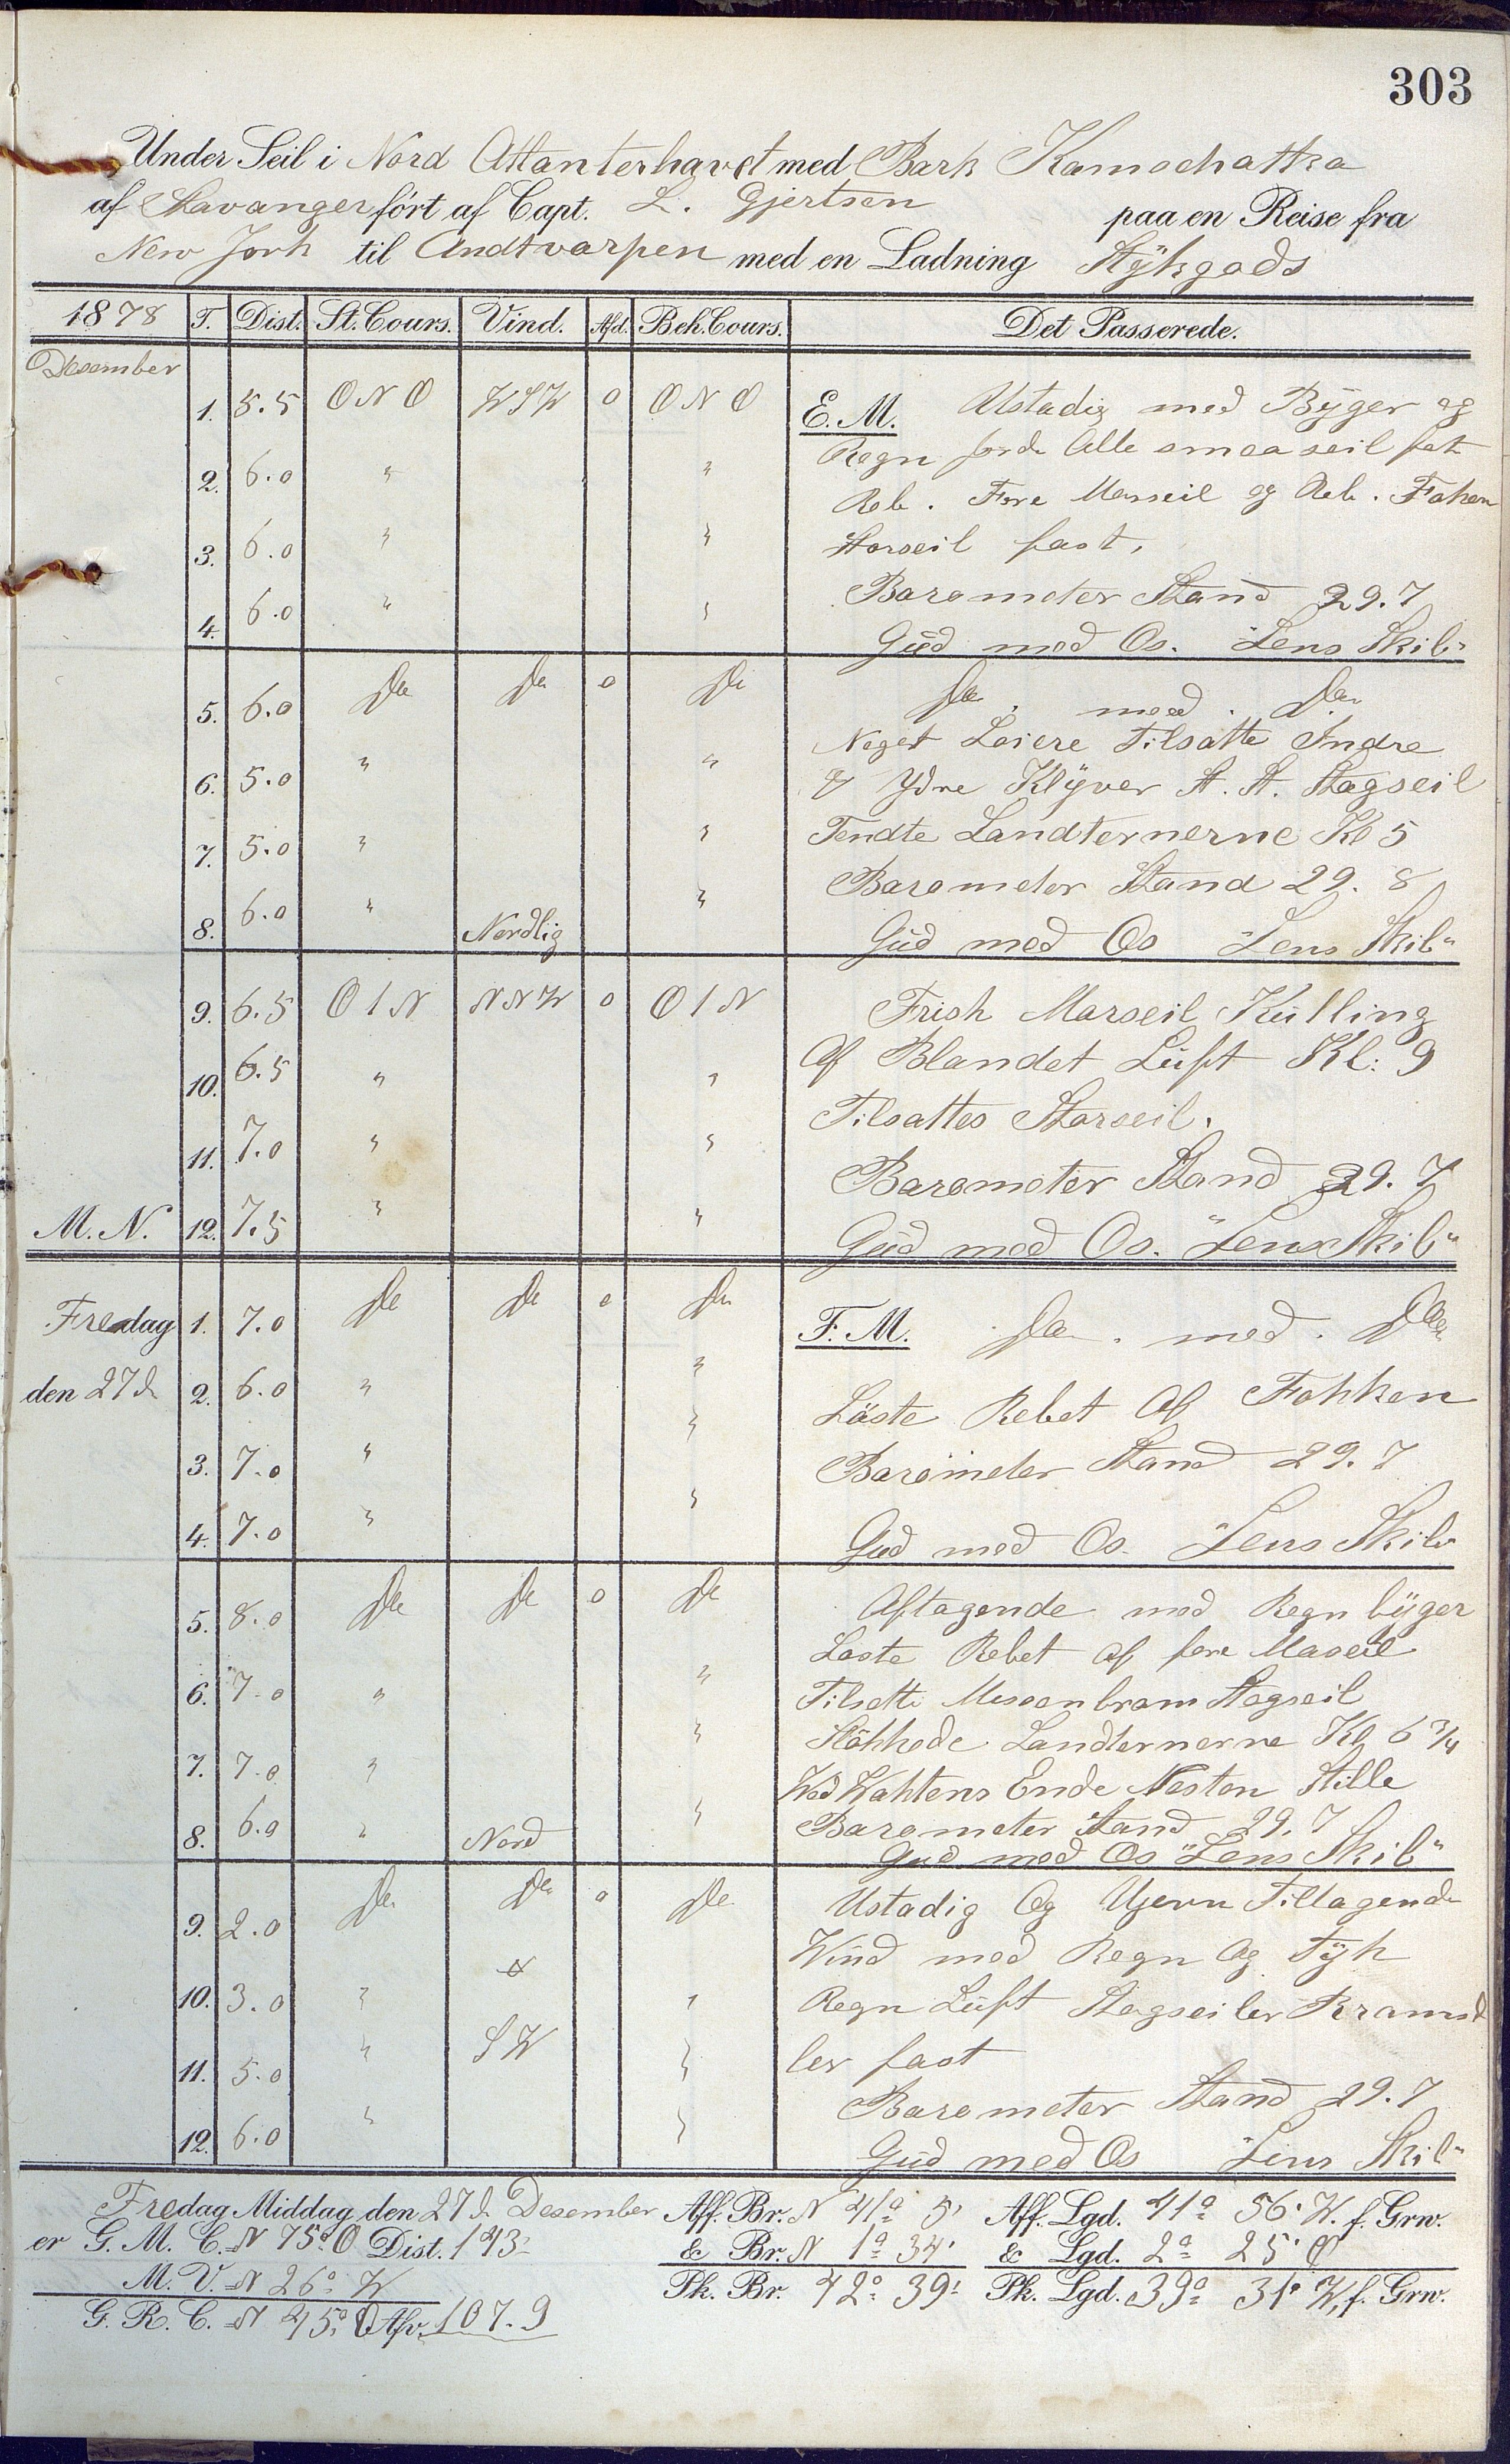 303
Under Seil i Nord Atlanterhavet med Bark Kamschatka
af Stavanger ført af Capt. L. Gjertsen paa en Reise fra
New Jork til Andtvarpen med en Ladning Stÿkgods
1878 T. Dist. St. Cours. Vind. Afd. Beh. Cours. Det Passerede.
Desember
1. 5.5 ONO WSW 0 ONO E. M. Ustadig med Bÿger og
Regn Alle smaa seil fast
2. 6.0 " " Reb. Fore Merseil og Reb. Foken
3. 6.0 " " Storseil fast.
Barometer Stand 29.7
4. 6.0 " " Gud med Os. "Lens Skib"
5. 6.0 Do Do 0 Do Do . med . Do
Noget Leiere Tilsatte Indre
6. 5.0 " " & Ydre Klÿver St. St. Stagseil
7. 5.0 " " Tendte Landternerne Kl 5
Barometer Stand 29. 8
8. 6.0 " Nordlig " Gud med Os "Lens Skib"
9. 6.5 O 1 N NNW 0 O 1 N Frisk Marseil Kulling
10. 6.5 " " Af Blandet Luft Kl: 9
11. 7.0 " " Tilsattes Storseil.
Barometer Stand 29. 7
M. N. 12. 7.5 " " Gud med Os. "Lens Skib"
Fredag 1. 7.0 Do Do 0 Do F. M. Do . med . Do
den 27d 2. 6.0 " " Löste Rebet Af Fokken
3. 7.0 " " Barometer Stand 29. 7
4. 7.0 " " Gud med Os. "Lens Skib"
5. 8.0 Do Do 0 Do Aftagende med Regn bÿger
Loste Rebet af fore Maseil
6. 7.0 " " Tilsatte Mesaan bram Stagseil
Slökkede Landternerne Kl 6 3/4
7. 7.0 " " Wed Wahtens Ende Nesten Stille
Barometer Stand 29. 7
8. 6.0 " Nord " Gud med Os "Lens Skib"
9. 2.0 Do Do 0 Do Ustadig Og Ujevn Tiltagende
Wind med Regn Og Tÿk
10. 3.0 " " Regn Luft Stagseiler Bramsei
11. 5.0 " SW " ler fast
Barometer Stand 29. 7
12. 6.0 " " Gud med Os "Lens Skib"
Fredag Middag den 27d Desember Aff. Br. N 41° 5' Aff. Lgd. 41° 56' W. f. Grw.
er G. M. C. N 75° O Dist. 143' & Br. N 1° 34' & Lgd. 2° 25' O
M. V. N 26° W Pk. Br. 42° 39' Pk. Lgd. 39° 31' W. f. Grw.
G. R. C. N 45° O Afv. 107.9